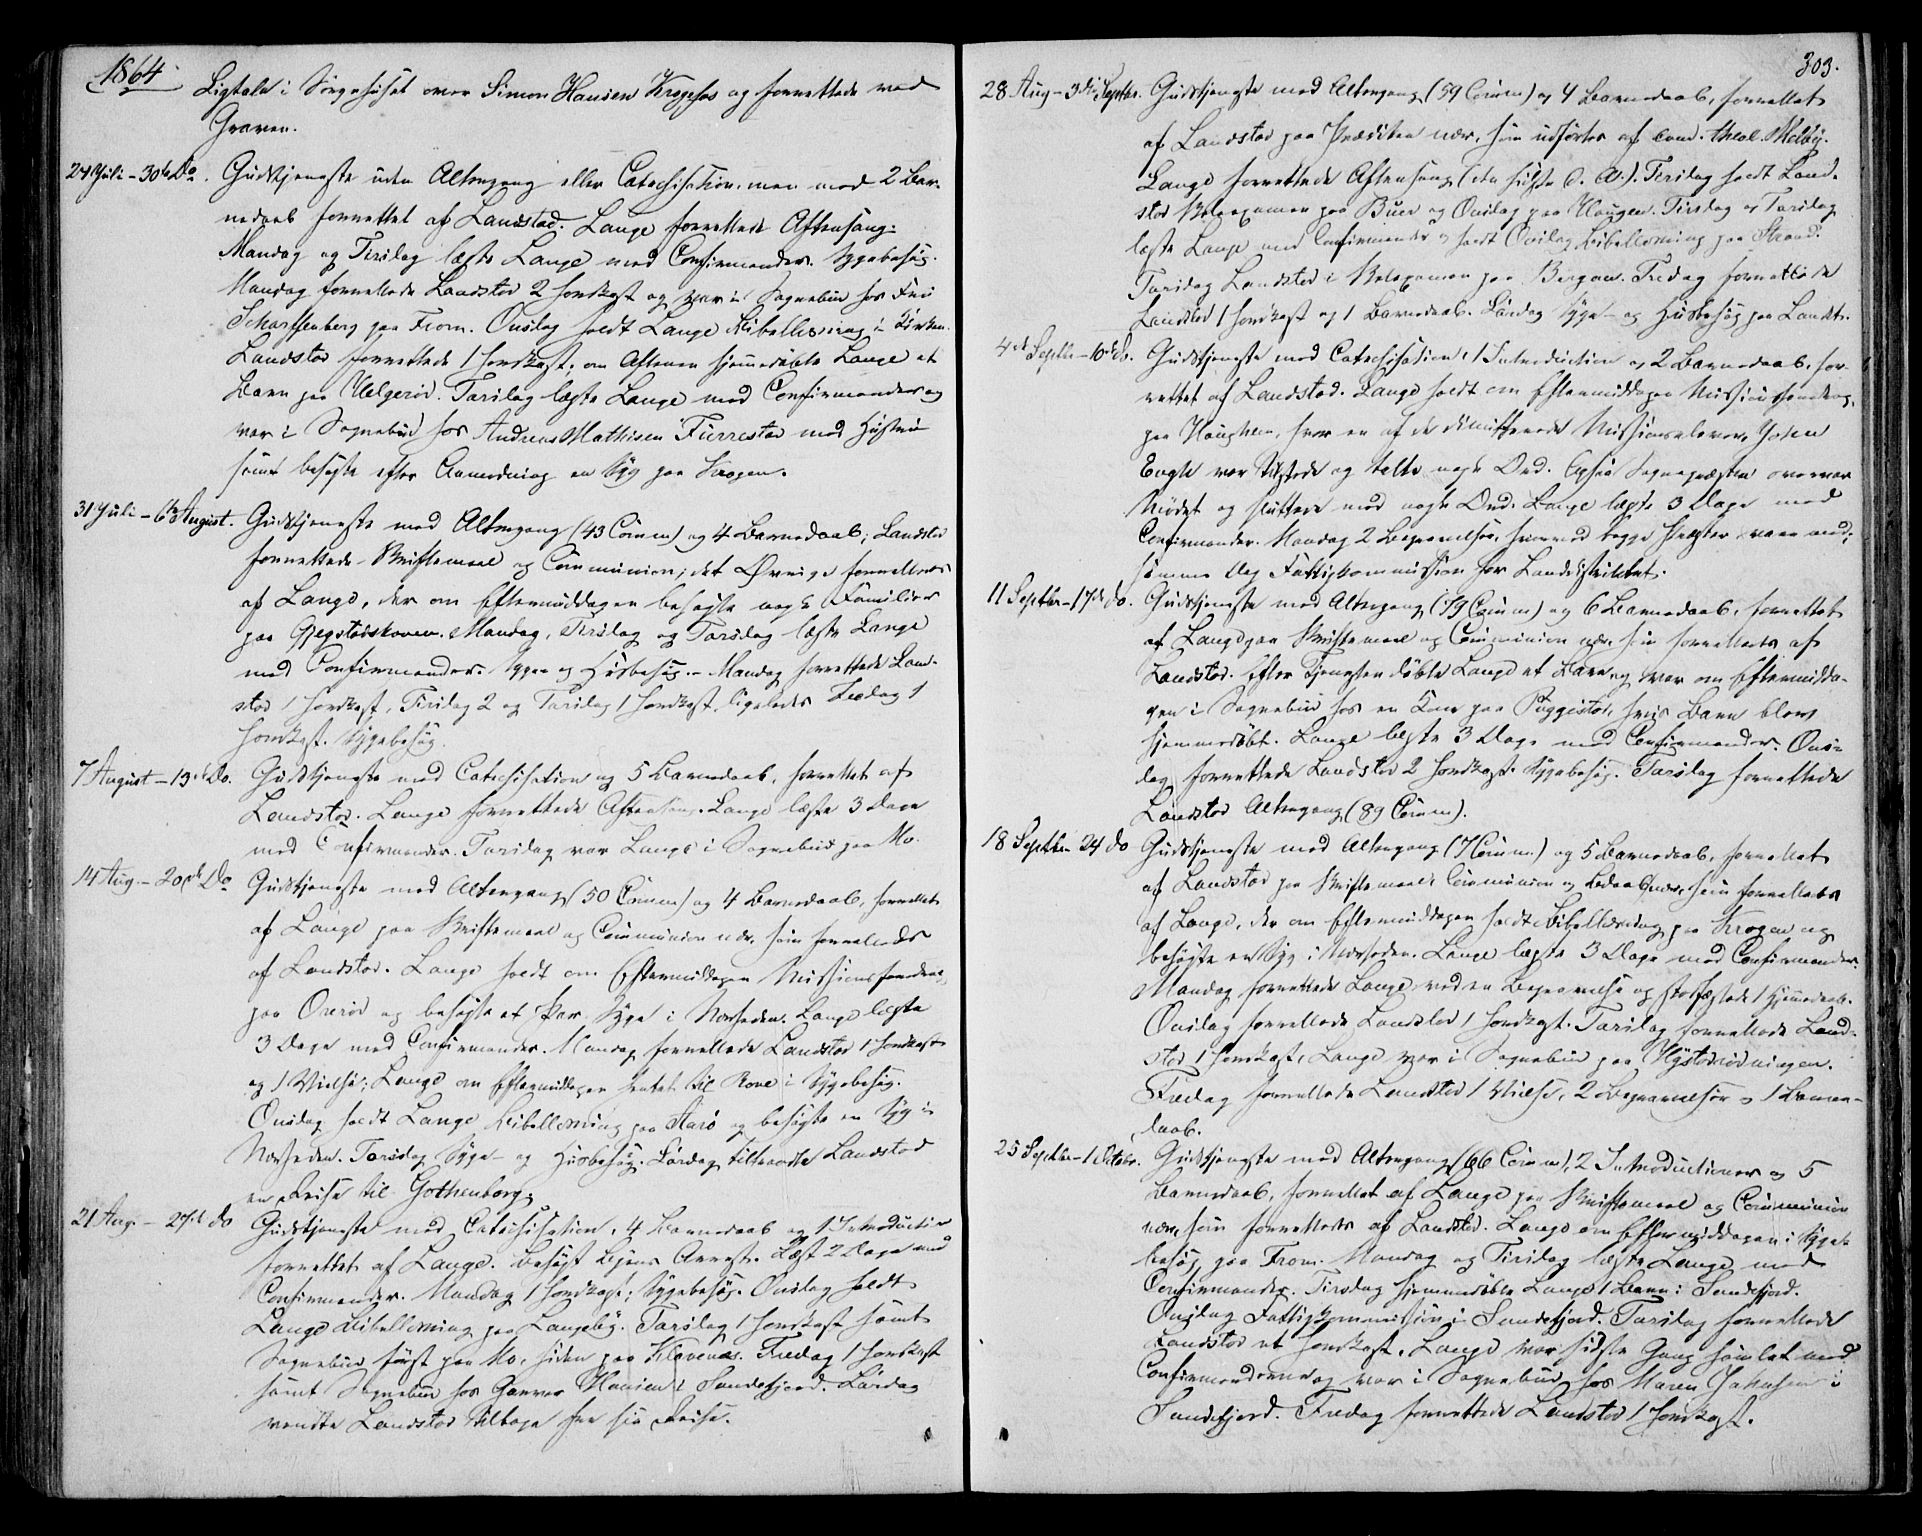 1864
Ligtale i Sørgehuset over Simon Hansen Krogshos og forrettede ved
Graven.
24 Juli - 30te Do. Gudstjeneste uden Altergang eller Catechisation, men med 2 Bar-
nedaab forrettet af Landstad. Lange forrettede Aftensang.
Mandag og Tirsdag læste Lange med Confirmander. Sygebesøg.
Mandag forrettede Landstad 2 Jordkast og var i Sognebud hos Fru
Scharffenberg paa From. Onsdag holdt Lange Bibellæsning i Kirken.
Landstad forrettede 1 Jordkast; om Aftenen hjemmedøbte Lange et
Barn paa Helgerød. Torsdag læste Lange med Confirmander og
var i Sognebud hos Andreas Mathisen Furrestad med Hustru
samt besøgte efter Anmodning en Syg paa Krogen.
31 Juli - 6te August. Gudstjeneste med Altergang (43 Comm) og 4 Barnedaab; Landstad
forrettede Skriftemaal og Communion; det Øvrige forrettedes
af Lange, der om Eftermiddagen besøgte nogle Familier
paa Gjegstadskoven. Mandag, Tirsdag og Torsdag læste Lange
med Confirmander. Syge og Husbesøg. - Mandag forrettede Land-
stad 1 Jordkast, Tirsdag 2 og Torsdag 1 Jordkast, ligeledes Fredag 1
Jordkast. Sygebesøg.
7 August - 13de Do. Gudstjeneste med Catechisation og 5 Barnedaab, forrettet af
Landstad. Lange forrettede Aftensang. Lange læste 3 Dage
med Confirmander. Torsdag var Lange i Sognebud paa Mo.
14 Aug. - 20de Do Gudstjeneste med Altergang (50 Comm) og 4 Barnedaab, forrettet
af Lange paa Skriftemaal og Communion nær, som forrettedes
af Landstad. Lange holdt om Eftermiddagen Missionsforedrag
paa Orerød og besøgte et Par Syge i Nærheden. Lange læste
3 Dage med Confirmander. Mandag forrettede Landstad 1 Jordkast
og 1 Vielse; Lange om Eftermiddagen hentet til Rove i Sygebesøg.
Onsdag holdt Lange Bibellæsning paa Aarø og besøgte en Syg i
Nærheden. Torsdag Syge- og Husbesøg. Lørdag tiltraadte Landstad
en Reise til Gothenborg.
21 Aug. - 27de do Gudstjeneste med Catechisation, 4 Barnedaab og 1 Introduction
forrettet af Lange. Besøgt Byens Arrest. Læst 2 Dage med
Confirmander. Mandag 1 Jordkast; Sygebesøg. Onsdag holdt
Lange Bibellæsning paa Langeby. Torsdag 1 Jordkast samt
Sognebud først paa Mo, siden paa Klavenæs. Fredag 1 Jordkast
samt Sognebud hos Gunvor Hansen i Sandefjord. Lørdag
vendte Landstad tilbage fra sin Reise.
303.
28 Aug - 3die Septbr. Gudstjeneste med Altergang (59 Comm) og 4 Barnedaab, forrettet
af Landstad paa Prædiken nær, som udførtes af Cand. theol. Melby.
Lange forrettede Aftensang (den sidste d. A.). Tirsdag holdt Land-
stad Skoleexamen paa Buer og Onsdag paa Haugen. Tirsdag og Torsdag
læste Lange med Confirmander og holdt Onsdag Bibellæsning paa Strand.
Torsdag Landstad i Skoleexamen paa Bergan. Fredag forrettede
Landstad 1 Jordkast og 1 Barnedaab. Lørdag Syge- og Husbesøg paa Landet.
4de Septbr - 10de Do. Gudstjeneste med Catechisation, 1 Introduction og 2 Barnedaab, for-
rettet af Landstad. Lange holdt om Eftermiddagen Missionsforedrag
paa Haughem, hvor en af de dimitterede Missionselever, John
Engh var tilstede og talte nogle Ord. Ogsaa Sognepræsten overvar
Mødet og sluttede med nogle Ord. Lange læste 3 Dage med
Confirmander. Mandag 2 Begravelser, hvorved begge Præster vare med;
samme Dag Fattigkommission for Landdistriktet.
11 Septbr - 17de do. Gudstjeneste med Altergang (79 Comm) og 6 Barnedaab, forrettet
af Lange paa Skriftemaal og Communion nær, som forrettedes af
Landstad. Efter Tjenesten døbte Lange et Barn og var om Eftermidda-
gen i Sognebud hos en Kone paa Puggestad, hvis Barn blev
hjemmedøbt. Lange læste 3 Dage med Confirmander. Ons-
dag forrettede Landstad 2 Jordkast. Sygebesøg. Torsdag forrettede
Landstad Altergang (89 Comm).
18 Septbr - 24 do Gudstjeneste med Altergang (7 Comm.) og 5 Barnedaab, forrettet
af Landstad paa Skriftemaal, Communion og Bedaab nær, som forrettedes
af Lange, der om Eftermiddagen holdt Bibellæsning paa Krogen og
besøgte en Syg i Nærheden. Lange læste 3 Dage med Confirmander.
Mandag forrettede Lange ved en Begravelse og stadfæstede 1 Hjemmedaab.
Onsdag forrettede Landstad 1 Jordkast. Torsdag forrettede Land-
stad 1 Jordkast, Lange var i Sognebud paa Hystadrødningen.
Fredag forrettede Landstad 1 Vielse, 2 Begravelser og 1 Barne-
daab.
25 Septbr - 1 Octobr. Gudstjeneste med Altergang (66 Comm), 2 Introductioner og 5
Barnedaab, forrettet af Lange paa Skriftemaal og Communion
nær, som forrettedes af Landstad. Lange om Eftermiddagen i Syge-
besøg paa From. Mandag og Tirsdag læste Lange med
Confirmander. Tirsdag hjemmedøbte Lange 1 Barn i Sandefjord.
Onsdag Fattigkommission i Sandefjord. Torsdag forrettede
Landstad et Jordkast. Lange var sidste Gang samlet med
Confirmanderne og var i Sognebud hos Maren Jakobsen i
Sandefjord. Fredag forrettede Landstad 1 Jordkast.